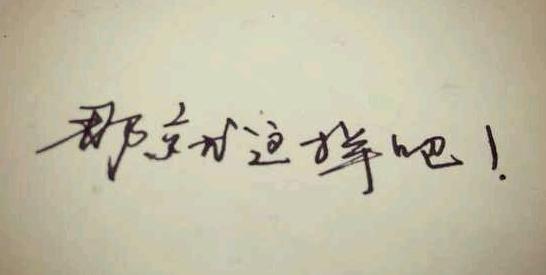 那就这样吧！